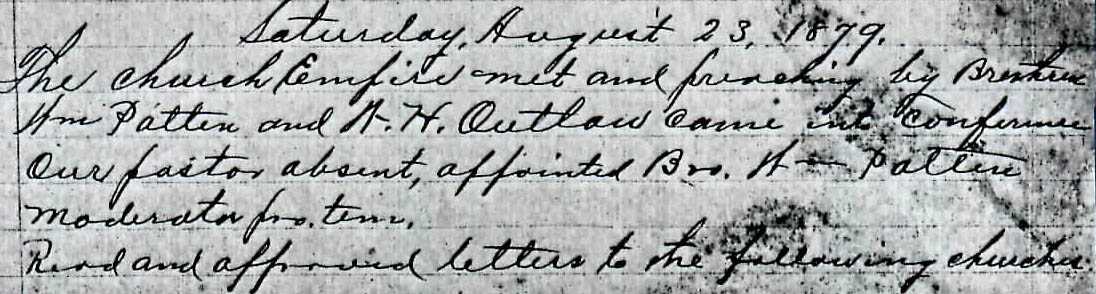 Saturday, August 23, 1879.
The church Empire met and preaching by Brethren
Wm Patten and W. H. Outlaw came into conference
Our pastor absent, appointed Bro. Wm Patten
moderator pro. tem.
Read and approved letters to the following churches